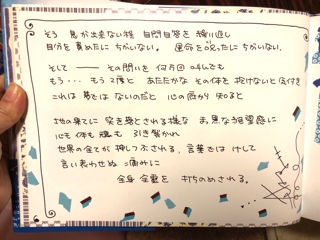 そう 息が出来ない程 自問自答を 繰り返し
自分を 責めたに ちがいない。 運命を 呪ったに ちがいない。
そして —— その問いを 何万回 叫んでも
もう… もう 2度と あたたかな その体を 抱けないと 気付き
これは 夢では ないのだと 心の底から 知ると
地の果てに 突き落とされる様な 真黒な 絶望感に
心も 体も 魂も 引き裂かれ
世界の全てが 押しつぶされる、言葉では けして
言い表わせぬ 痛みに
全身 全霊を 打ちのめされる。